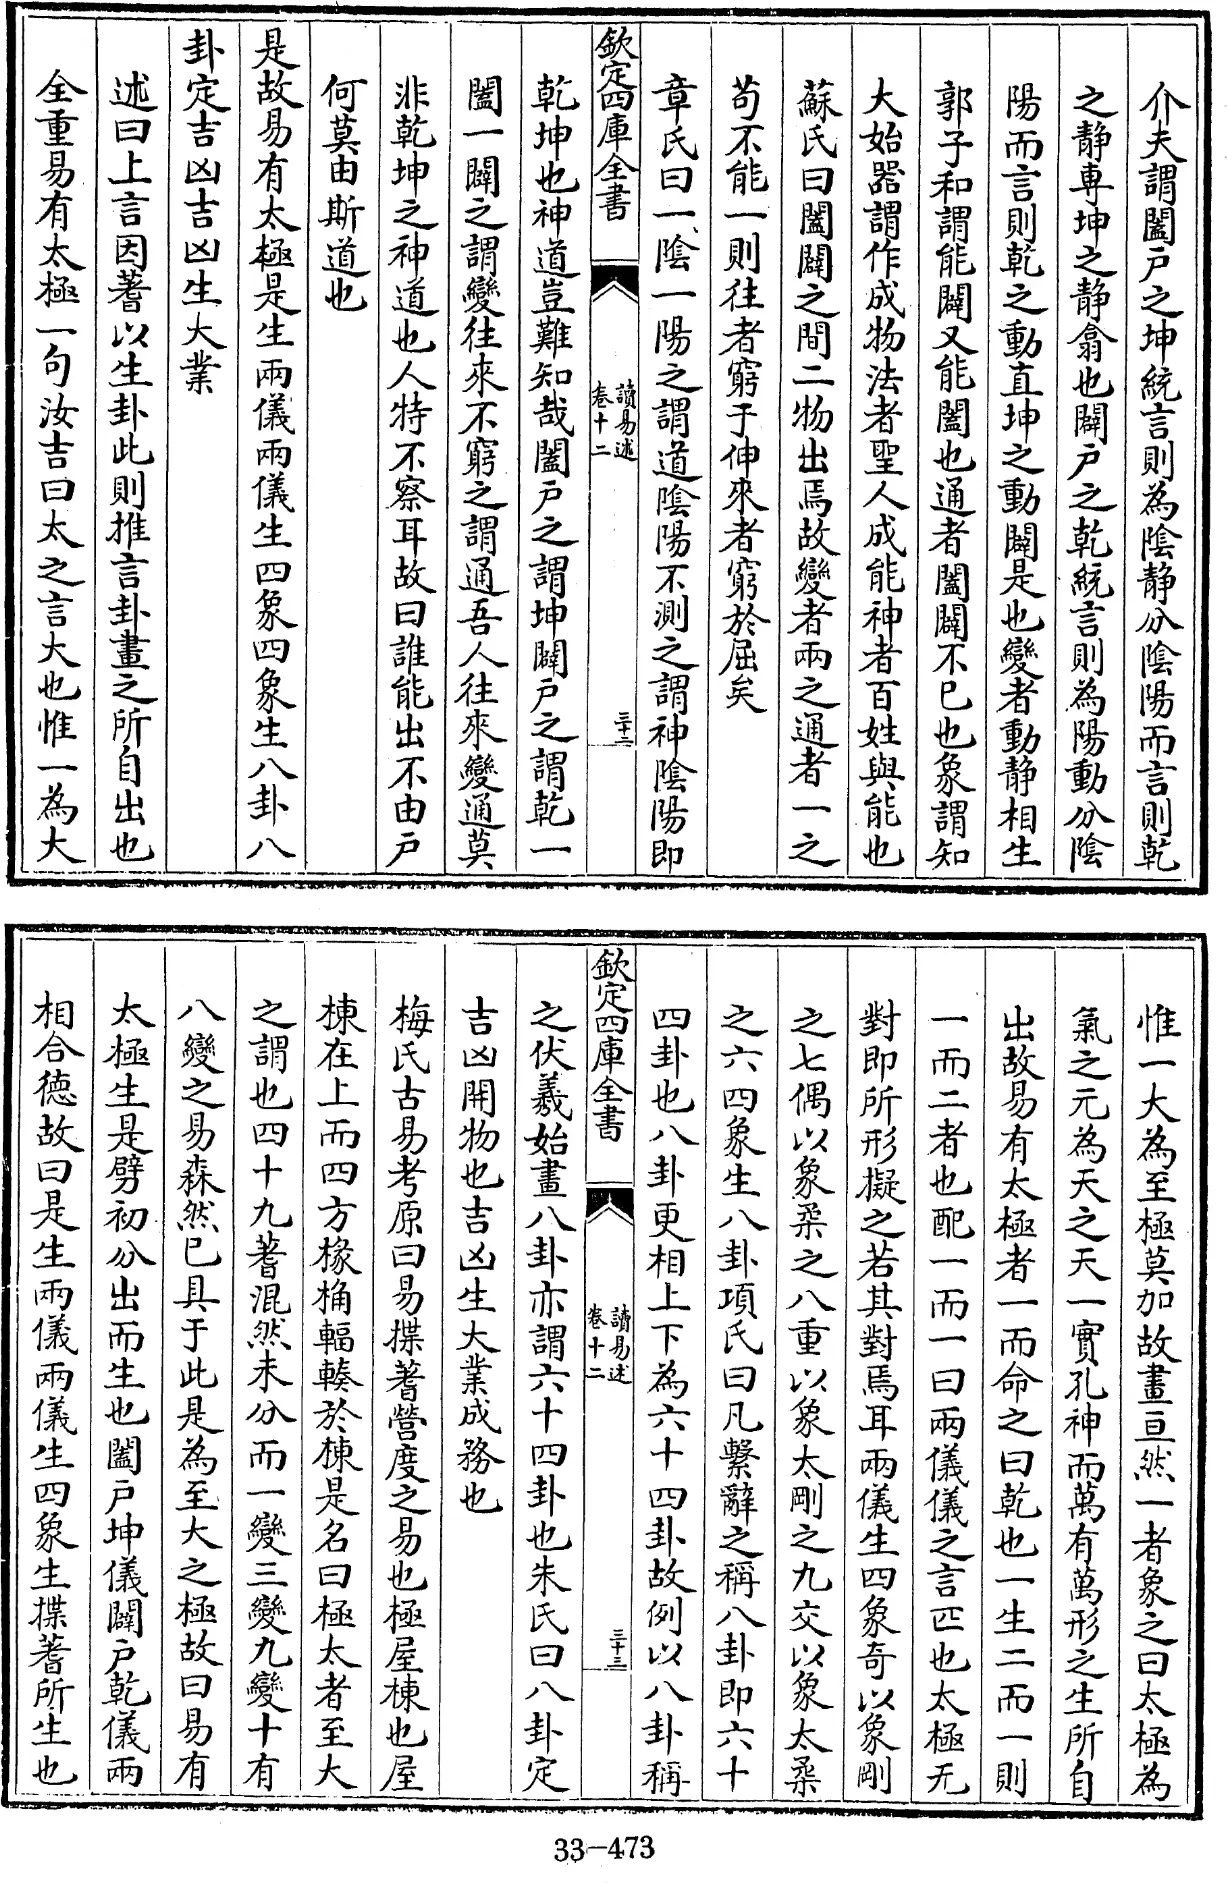 介夫謂闔戸之坤統言則為陰静分陰陽而言則乾
之静専坤之静翕也闢戸之乾統言則為陽動分陰
陽而言則乾之動直坤之動闢是也變者動静相生
郭子和謂能闢又能闔也通者闔闢不已也象謂知
大始器謂作成物法者聖人成能神者百姓與能也
蘇氏曰闔闢之間二物出焉故變者兩之通者一之
苟不能一則往者窮于伸來者窮於屈矣
章氏曰一陰一陽之謂道陰陽不測之謂神陰陽即
欽定四庫全書
讀易述
卷十二
三十二
乾坤也神道豈難知哉闔戸之謂坤闢戸之謂乾一
闔一闢之謂變往來不窮之謂通吾人往來變通莫
非乾坤之神道也人特不察耳故曰誰能出不由戸
何莫由斯道也
是故易有太極是生兩儀兩儀生四象四象生八卦八
卦定吉凶吉凶生大業
述曰上言因蓍以生卦此則推言卦畫之所自出也
全重易有太極一句汝吉曰太之言大也惟一為大
惟一大為至極莫加故畫亘然一者象之曰太極為
氣之元為天之天一實孔神而萬有萬形之生所自
出故易有太極者一而命之曰乾也一生二而一則
一而二者也配一而一曰兩儀儀之言匹也太極无
對即所形擬之若其對焉耳兩儀生四象奇以象剛
之七偶以象柔之八重以象太剛之九交以象太柔
之六四象生八卦項氏曰凡繫辭之稱八卦即六十
四卦也八卦更相上下為六十四卦故例以八卦稱
欽定四庫全書
讀易述
卷十二
三十三
之伏羲始畫八卦亦謂六十四卦也朱氏曰八卦定
吉凶開物也吉凶生大業成務也
梅氏古易考原曰易揲蓍營度之易也極屋棟也屋
棟在上而四方椽桷輻輳於棟是名曰極太者至大
之謂也四十九蓍混然未分而一變三變九變十有
八變之易森然已具于此是為至大之極故曰易有
太極生是劈初分出而生也闔戸坤儀闢戸乾儀兩
相合德故曰是生兩儀兩儀生四象生揲蓍所生也
33-473